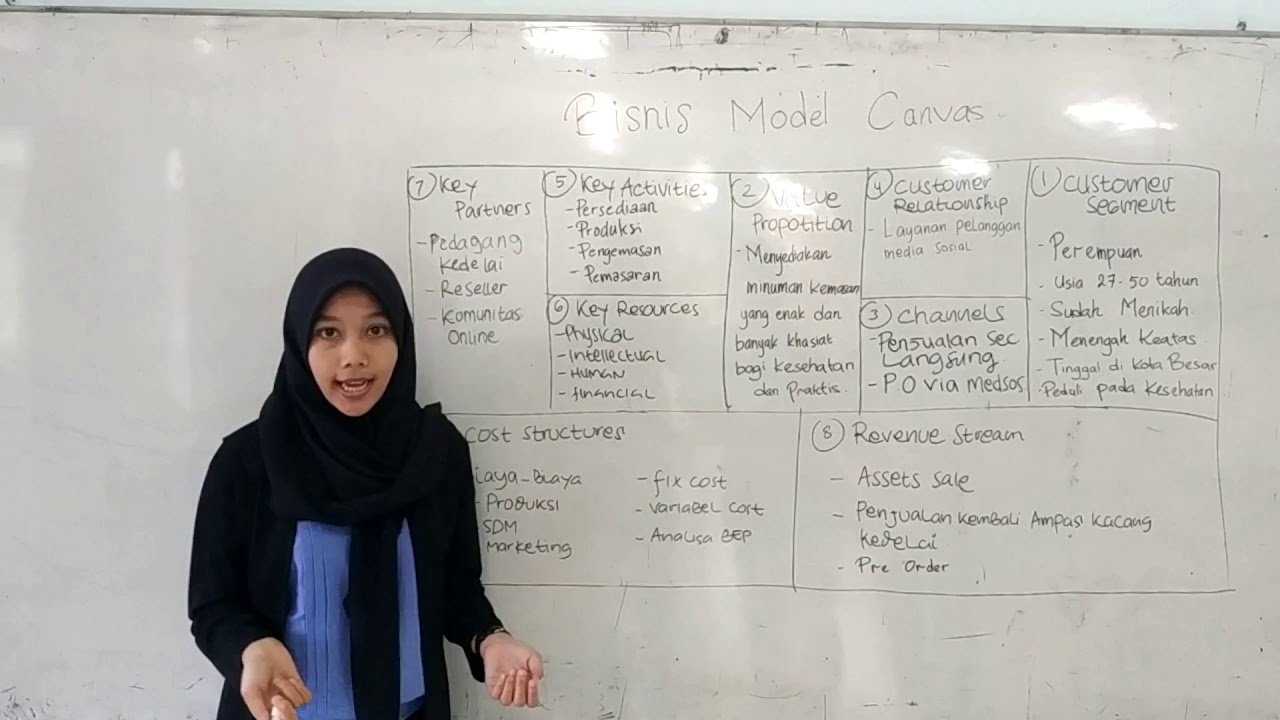 Bisnis Model Canvas
7 Key
Partners
- Pedagang
Kedelai
- Reseller
- Komunitas
Online
5 Key Activities
- Persediaan
- Produksi
- Pengemasan
- Pemasaran
6 Key Resources
- Physical
- Intellectual
- Human
- financial
2 Value
Propotition
- Menyediakan
minuman kemasan
yang enak dan
banyak khasiat
bagi kesehatan
dan Praktis.
4 Customer
Relationship
- Layanan Pelanggan
media sosial
3 Channels
- Penjualan Sec
Langsung.
- P.O via medsos
1 Customer
Segment
- Perempuan
- Usia 27-50 tahun
- Sudah Menikah.
- Menengah Keatas.
- Tinggal di Kota Besar
- Peduli pada Kesehatan
Cost Structures
- Produksi
SDM
Marketing
- fix cost
- Variabel Cost
- Analisa BEP
8 Revenue Stream
- Assets sale
- Penjualan Kembali Ampas Kacang
Kedelai.
- Pre Order